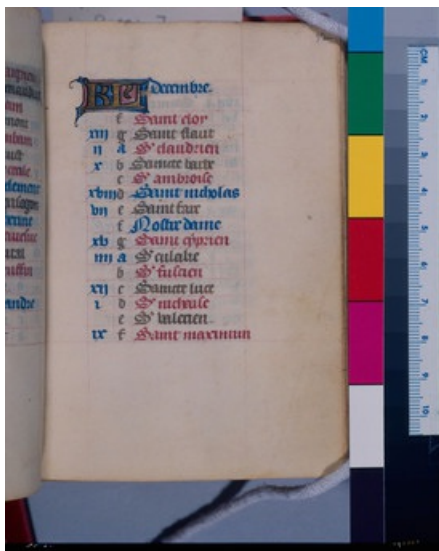 KL decembre.
f Saint eloy
xiii g Saint flaut
ii a S' claudien
x b Saincte barbe
c S' ambroise
xviii d Saint nicholas
vii e Saint fare
f Nostre dame
xv g Saint cyprien
iiii a S' eulalie
b S' fuscien
xii c Saincte luce
i d S' nichaise
e S' valerien
ix f Saint maximin